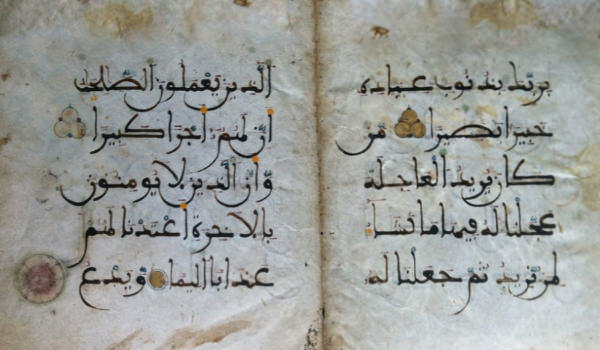 بربك بذنوب عباده
خبيرا بصيرا من
كان يريد العاجلة
عجلنا له فيها ما نشا
لمن نريد ثم جعلنا له
الذين يعملون الصلحت
أن لهم أجرا كبيرا
وأن الذين لا يومنون
بالاخرة أعتدنا لهم
عذابا اليما ويدع